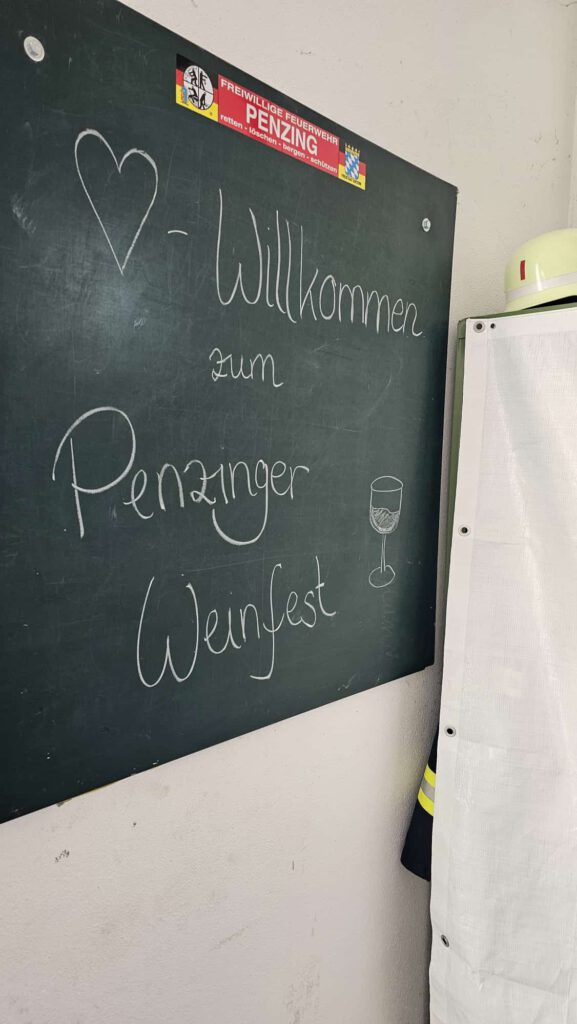 FREIWILLIGE FEUERWEHR
PENZING
retten - löschen - bergen - schützen
- Willkommen
zum
Penzinger
Weinfest